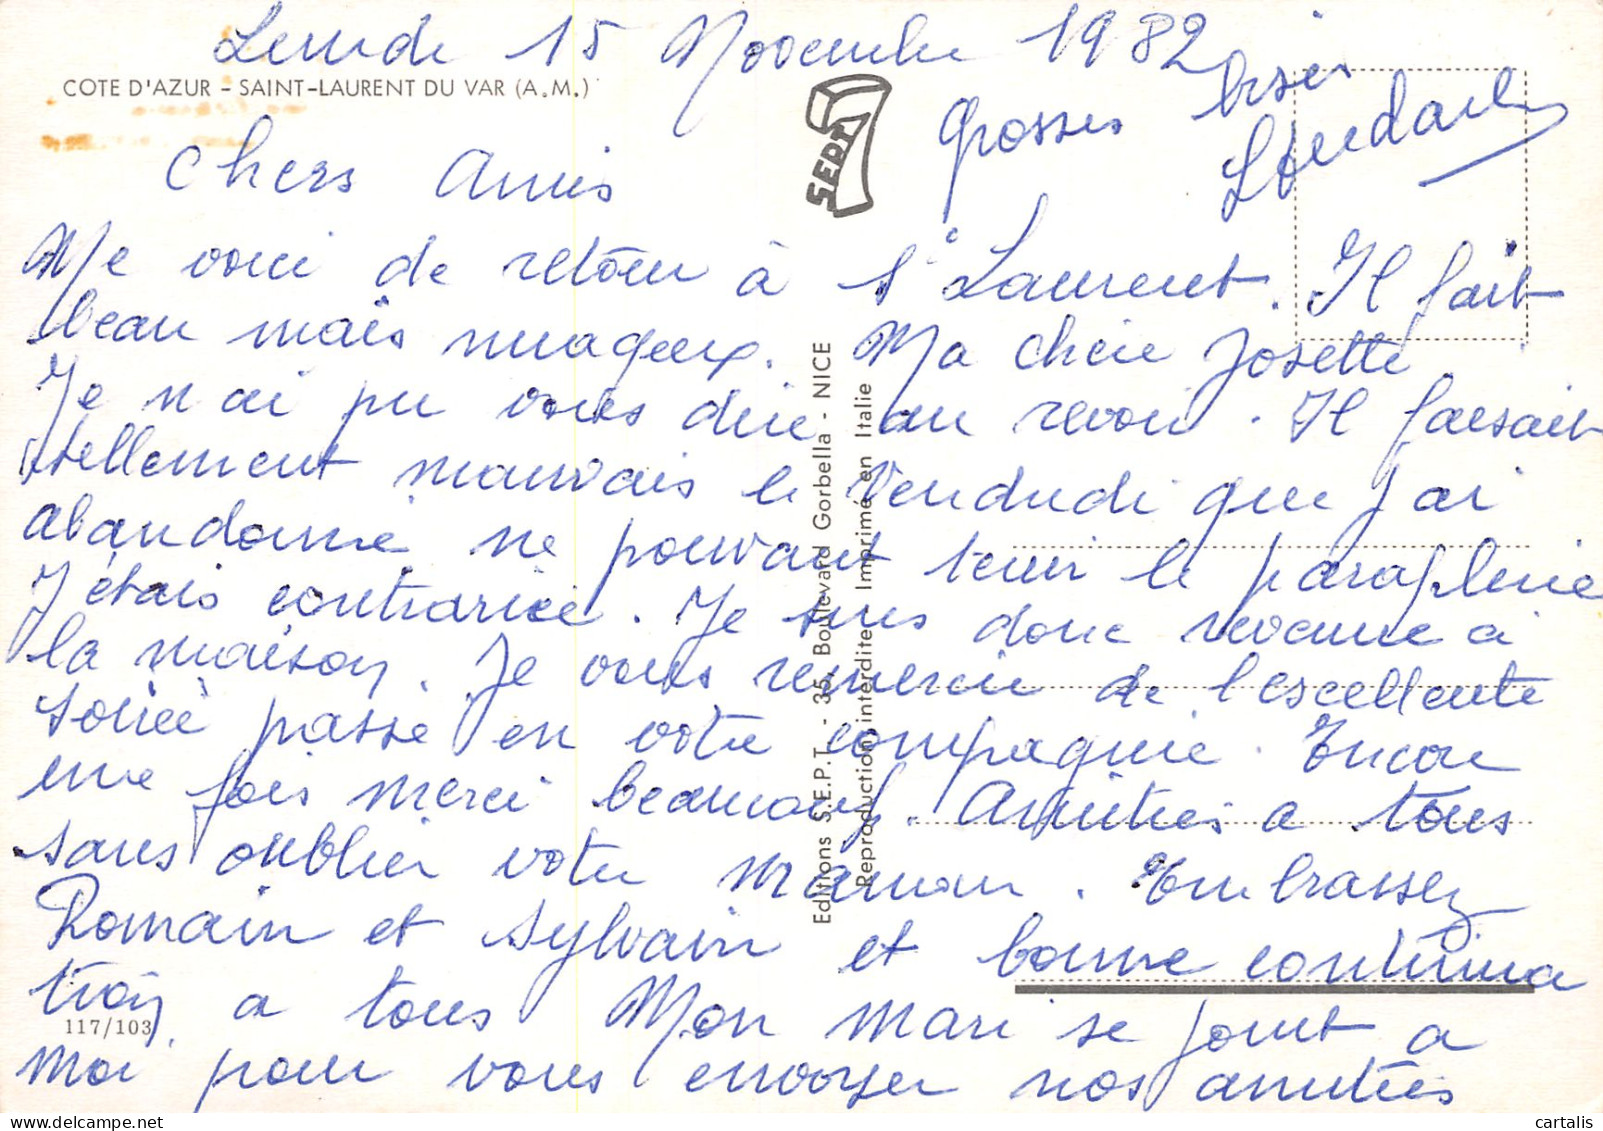 Lundi 15 Novembre 1982
COTE D'AZUR - SAINT-LAURENT DU VAR (A.M.)
grosses bises
SEPT
Chers Amis
Me voici de retour à St Laurent. Il fait
beau mais nuageux. Ma chère Josette
Je n'ai pu vous dire au revoir. Il faisait
tellement mauvais le Vendredi que j'ai
abandonné ne pouvant tenir le parapluie
J'étais contrariée. Je suis donc revenue à
la maison. Je vous remercie de l'excellente
soirée passé en votre compagnie. Encore
une fois merci beaucoup. Amitiés a tous
sans oublier votre Maman. Embrassez
Romain et Sylvain et bonne continua
tion a tous Mon mari se joint a
117/103
moi pour vous envoyer nos amitiés
Editions S.E.P.T. - 35, Boulevard Gorbella - NICE
Reproduction interdite Imprimé en Italie
cartalis